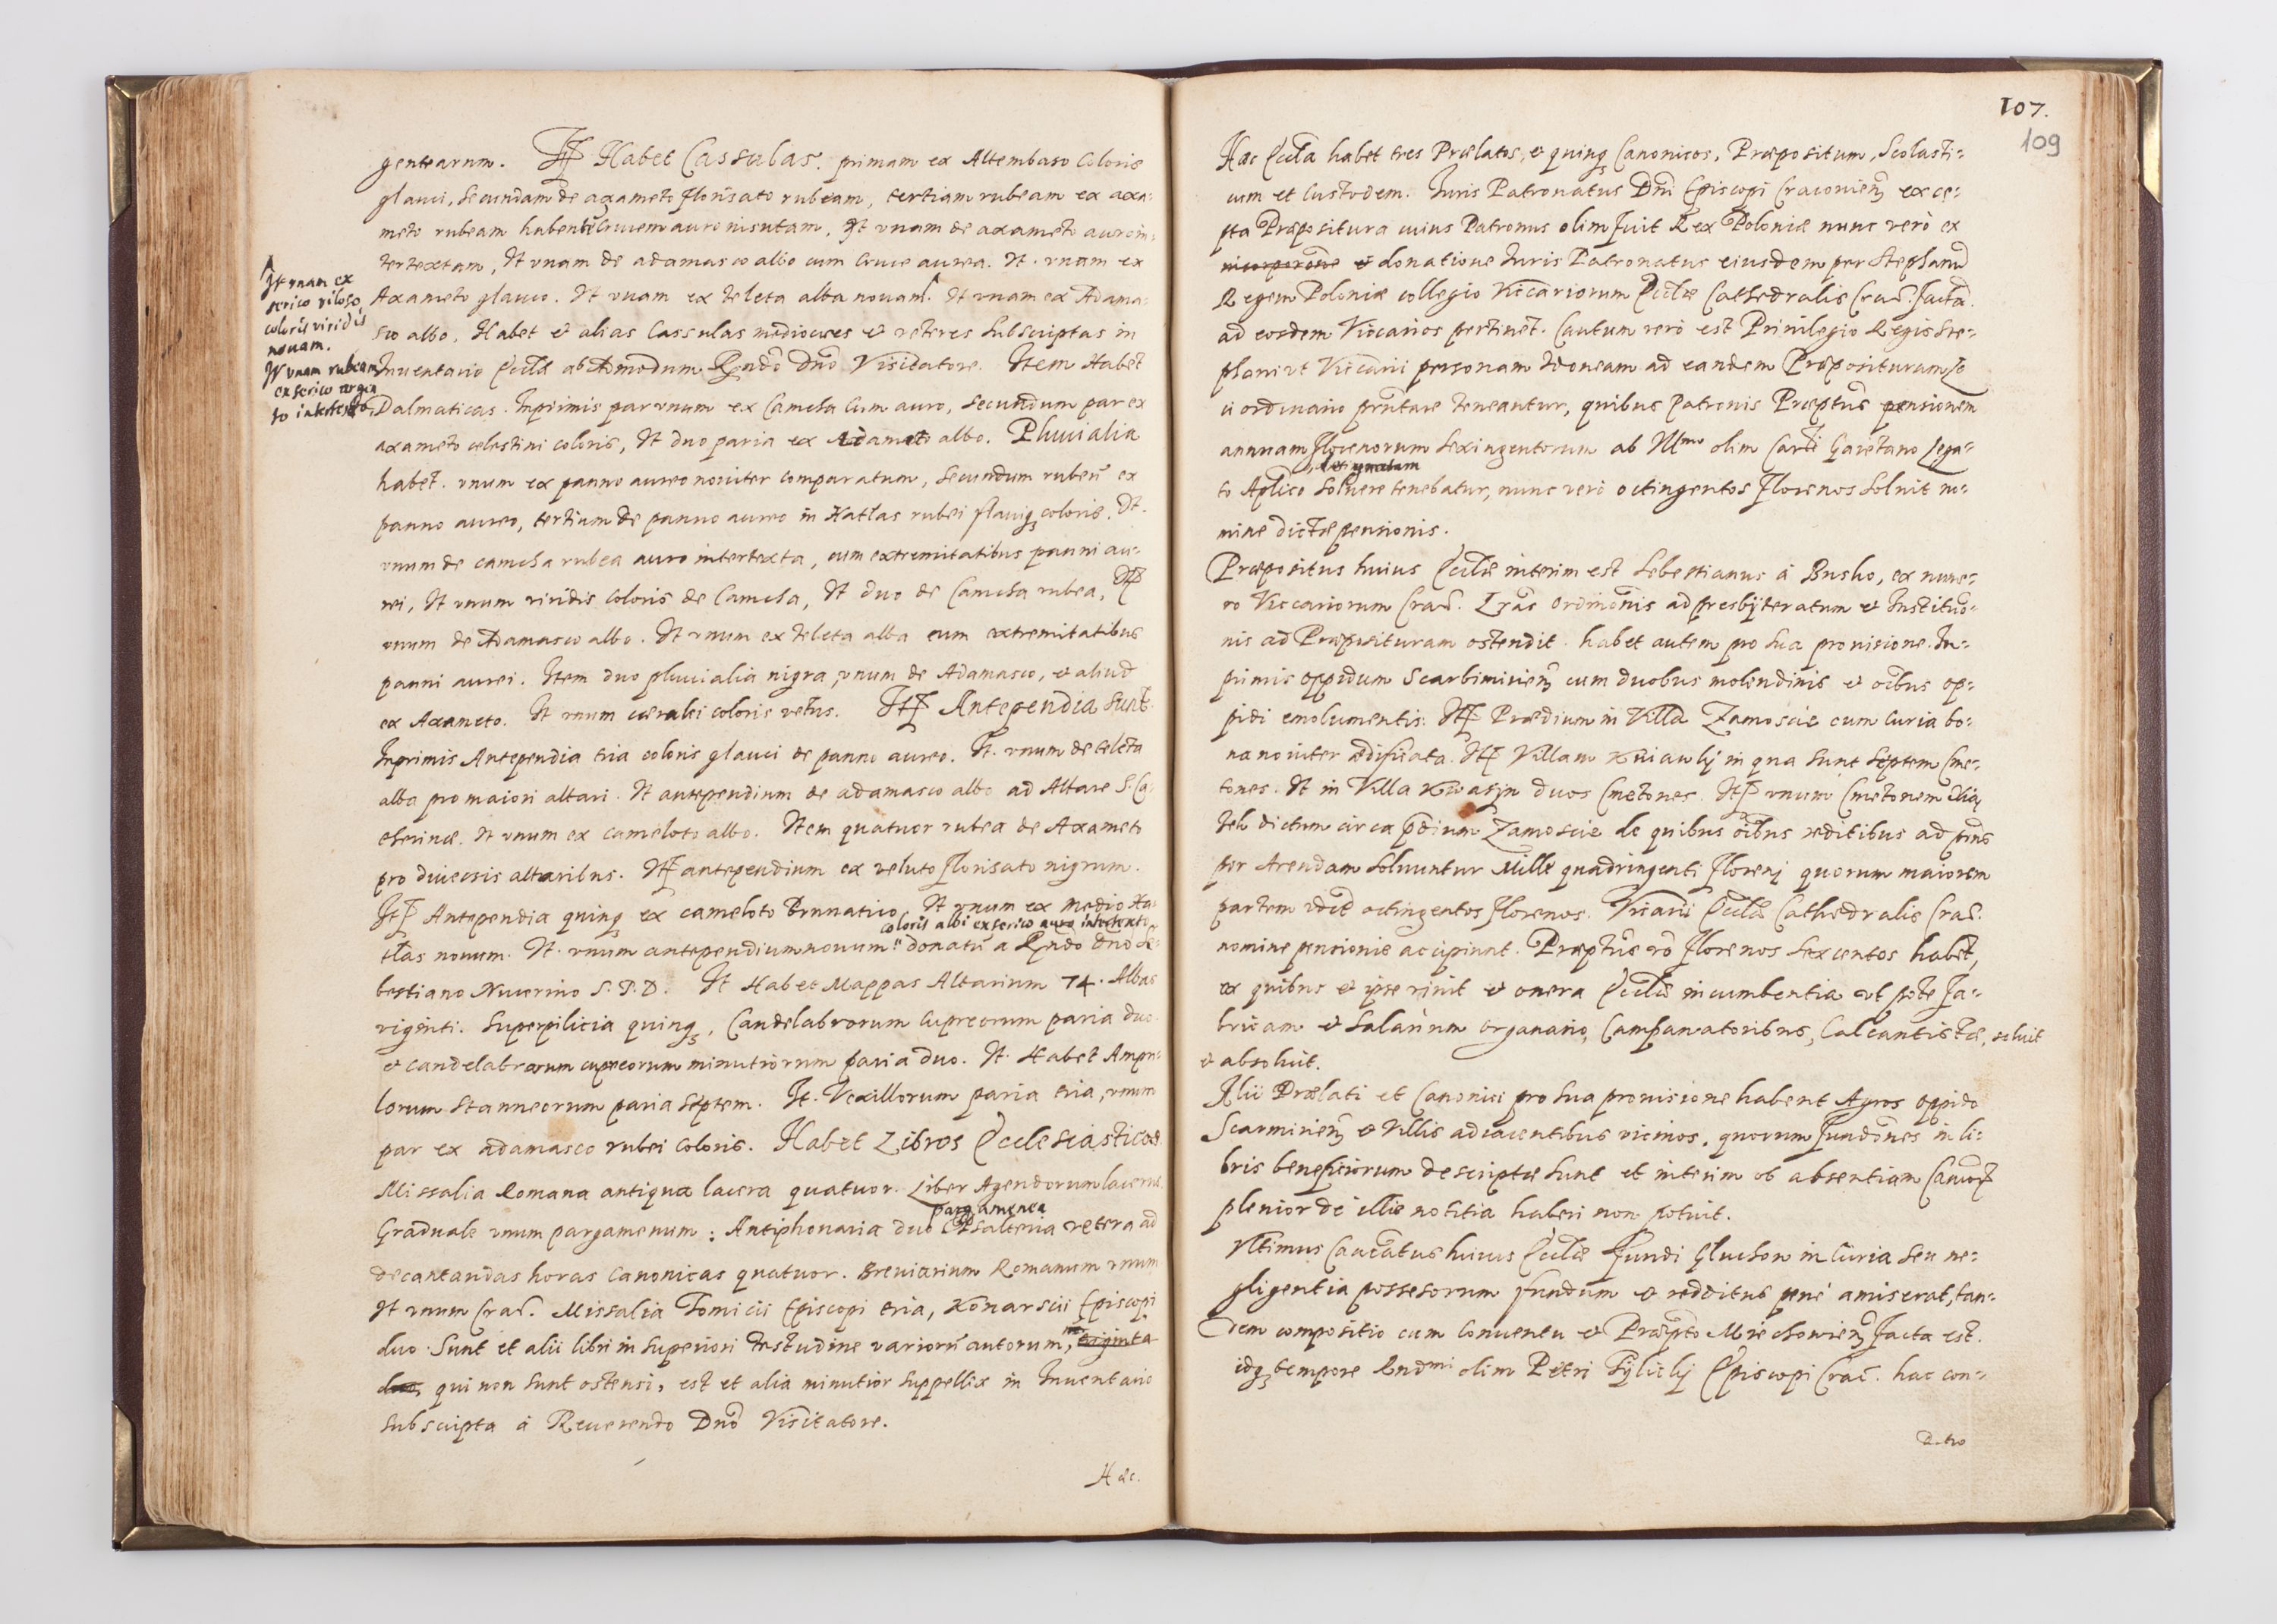 gentearum. It Habet Cassulas. primam ex Altembaso Coloris
glauci, Secundam de axameto florisato rubeam, tertiam rubeam ex axa-
meto rubeam habente Crucem auro nisutam, It vnam de axameto auro in-
tertextam, It vnam de adamasco albo cum Cruce aurea. It. vnam ex
Axameto glauco. It vnam ex teleta alba nouam. It vnam ex Adama-
sco albo. Habet et alias Cassulas mediocres et veteres Subscriptas in
Inuentario Eccliæ ab Admodum Rndo Dno Visitatore. Item Habet
Dalmaticas. Inprimis par vnum ex Camcha Cum auro, secundum par ex
axameto celestini coloris, It duo paria ex Adamasto albo. Pluuialia
habet. vnum ex panno aureo nouiter comparatum, Secundum rubeū ex
panno aureo, tertium de panno aureo in Hatlas rubei flauiq coloris. It.
vnum de camcha rubea auro intertexta, cum extremitatibus panni au-
rei, It vnum viridis Coloris de Camcha, It duo de Camcha rubea, It
vnum de Adamasco albo. It vnum ex teleta alba cum extremitatibus
panni aurei. Item duo pluuialia nigra, vnum de Adamasco, et aliud
ex Axameto. It vnum cærulei coloris vetus. It Antependia Sunt.
Inprimis Antependia tria coloris glauci de panno aureo. It. vnum de teleta
alba pro maiori altari. It antependium de adamasco albo ad Altare S. Ca-
therinæ. It vnum ex cameloto albo. Item quatuor rubea de Axameto
pro diuersis altaribus. It antependium ex veluto florisato nigrum.
It Antependia quinq ex cameloto Brunatico, It vnum ex medio Ha-
coloris albi ex serico auro intertexto
tlas nouum. It. vnum antependium nouum donatū a Rndo Dno Se-
bestiano Nucerino S. T. D. It Habet Mappas Altarium 74. Albas
viginti. Superpilicia quinq, Candelabrorum Cupreorum paria duo
et candelabrorum cupreorum minutiorum paria duo. It. Habet Ampu-
lorum Stanneorum paria Septem. It. Vexillorum paria tria, vnum
par ex adamasco rubei coloris. Habet Libros Ecclesiasticos
Missalia Romana antiqua lacera quatuor. Liber Agendorum lacerus
pargamenea
Graduale vnum pargamenum: Antiphonaria duo Psalteria vetera ad
decantandas horas Canonicas quatuor. Breuiarium Romanum vnum
It vnum Crac. Missalia Tomicii Episcopi tria, Konarscii Episcopi
duo. Sunt et alii libri in Superiori testudine variorū autorum, triginta
duo, qui non sunt ostensi, est et alia minutior Suppellix in Inuentario
Subscripta à Reuerendo Dno Visitatore.
Hæc.
It vnam ex
serico viloso
coloris viridis
nouam.
It vnam rubeam
ex serico argen
to intertexto
107.
109
Hæc Eccla habet tres Prælatos, et quinq Canonicos, Præpositum, Scolasti-
cum et Custodem. Iuris Patronatus Dni Episcopi Cracouien exce-
pta Præpositura cuius Patronus olim fuit Rex Poloniæ nunc verò ex
incorporone et donatione Iuris Patronatus eiusdem per Stephanū
Regem Poloniæ collegio Viccariorum Eccliæ Cathedralis Crac. facta
ad eosdem Viccarios pertinet. Cautum verò est Priuilegio Regis Ste-
phani vt Viccarii personam Idoneam ad eandem Præposituram Lo
ci ordinario prntare teneantur, quibus Patronis Præptus pensionem
annuam florenorum Sexingentorum ab Illmo olim Cardi Gaietano Lega-
assignatam
to Aplico soluere tenebatur, nunc verò octingentos florenos soluit no-
mine dictæ pensionis.
Præpositus huius Eccliæ interim est Sebestianus à Busko, ex nume-
ro Viccariorum Crac. Lras Ordinonis ad presbyteratum et Institutio-
nis ad Præposituram ostendit. habet autem pro sua prouisione. In-
primis oppidum Scarbimirien cum duobus molendinis et oibus op-
pidi emolumentis: It Prædium in Villa Zamoscie cum Curia bo-
na nouiter ædificata. It Villam Kuiawki in qua Sunt Septem Cme-
tones. It in Villa Kwasyn duos Cmetones. It vnum Cmetonem
dictum circa pdium Zamoscie de quibus oibus reditibus ad pns
per Arendam soluuntur Mille quadringenti floreni quorum maiorem
partem vdct octingentos florenos. Vicarii Eccliæ Cathedralis Crac.
nomine pensionis accipiunt. Præptus vo florenos Sexcentos habet,
ex quibus et ipse viuit et onera Eccliæ incumbentia vt pote fa-
bricam et Salarium organario, Campanatoribus, Calcantistæ, soluit
et absoluit.
Alii Prælati et Canonici pro sua prouisione habent Agros oppido
Scarmirien et Villis adiacentibus vicinos, quorum fundones in li-
bris beneficiorum descriptæ Sunt et interim ob absentiam Canco
plenior de illis notitia haberi non potuit.
Vltimus Canonicatus huius Eccliæ fundi Gluchow in Curia Seu ne-
gligentia possesorum fundum et redditus penè amiserat, tan-
dem compositio cum Conuentu et Præpto Miechowien facta est.
idq tempore Rndmi olim Petri Tylicky Episcopi Crac. hac con-
d-tio